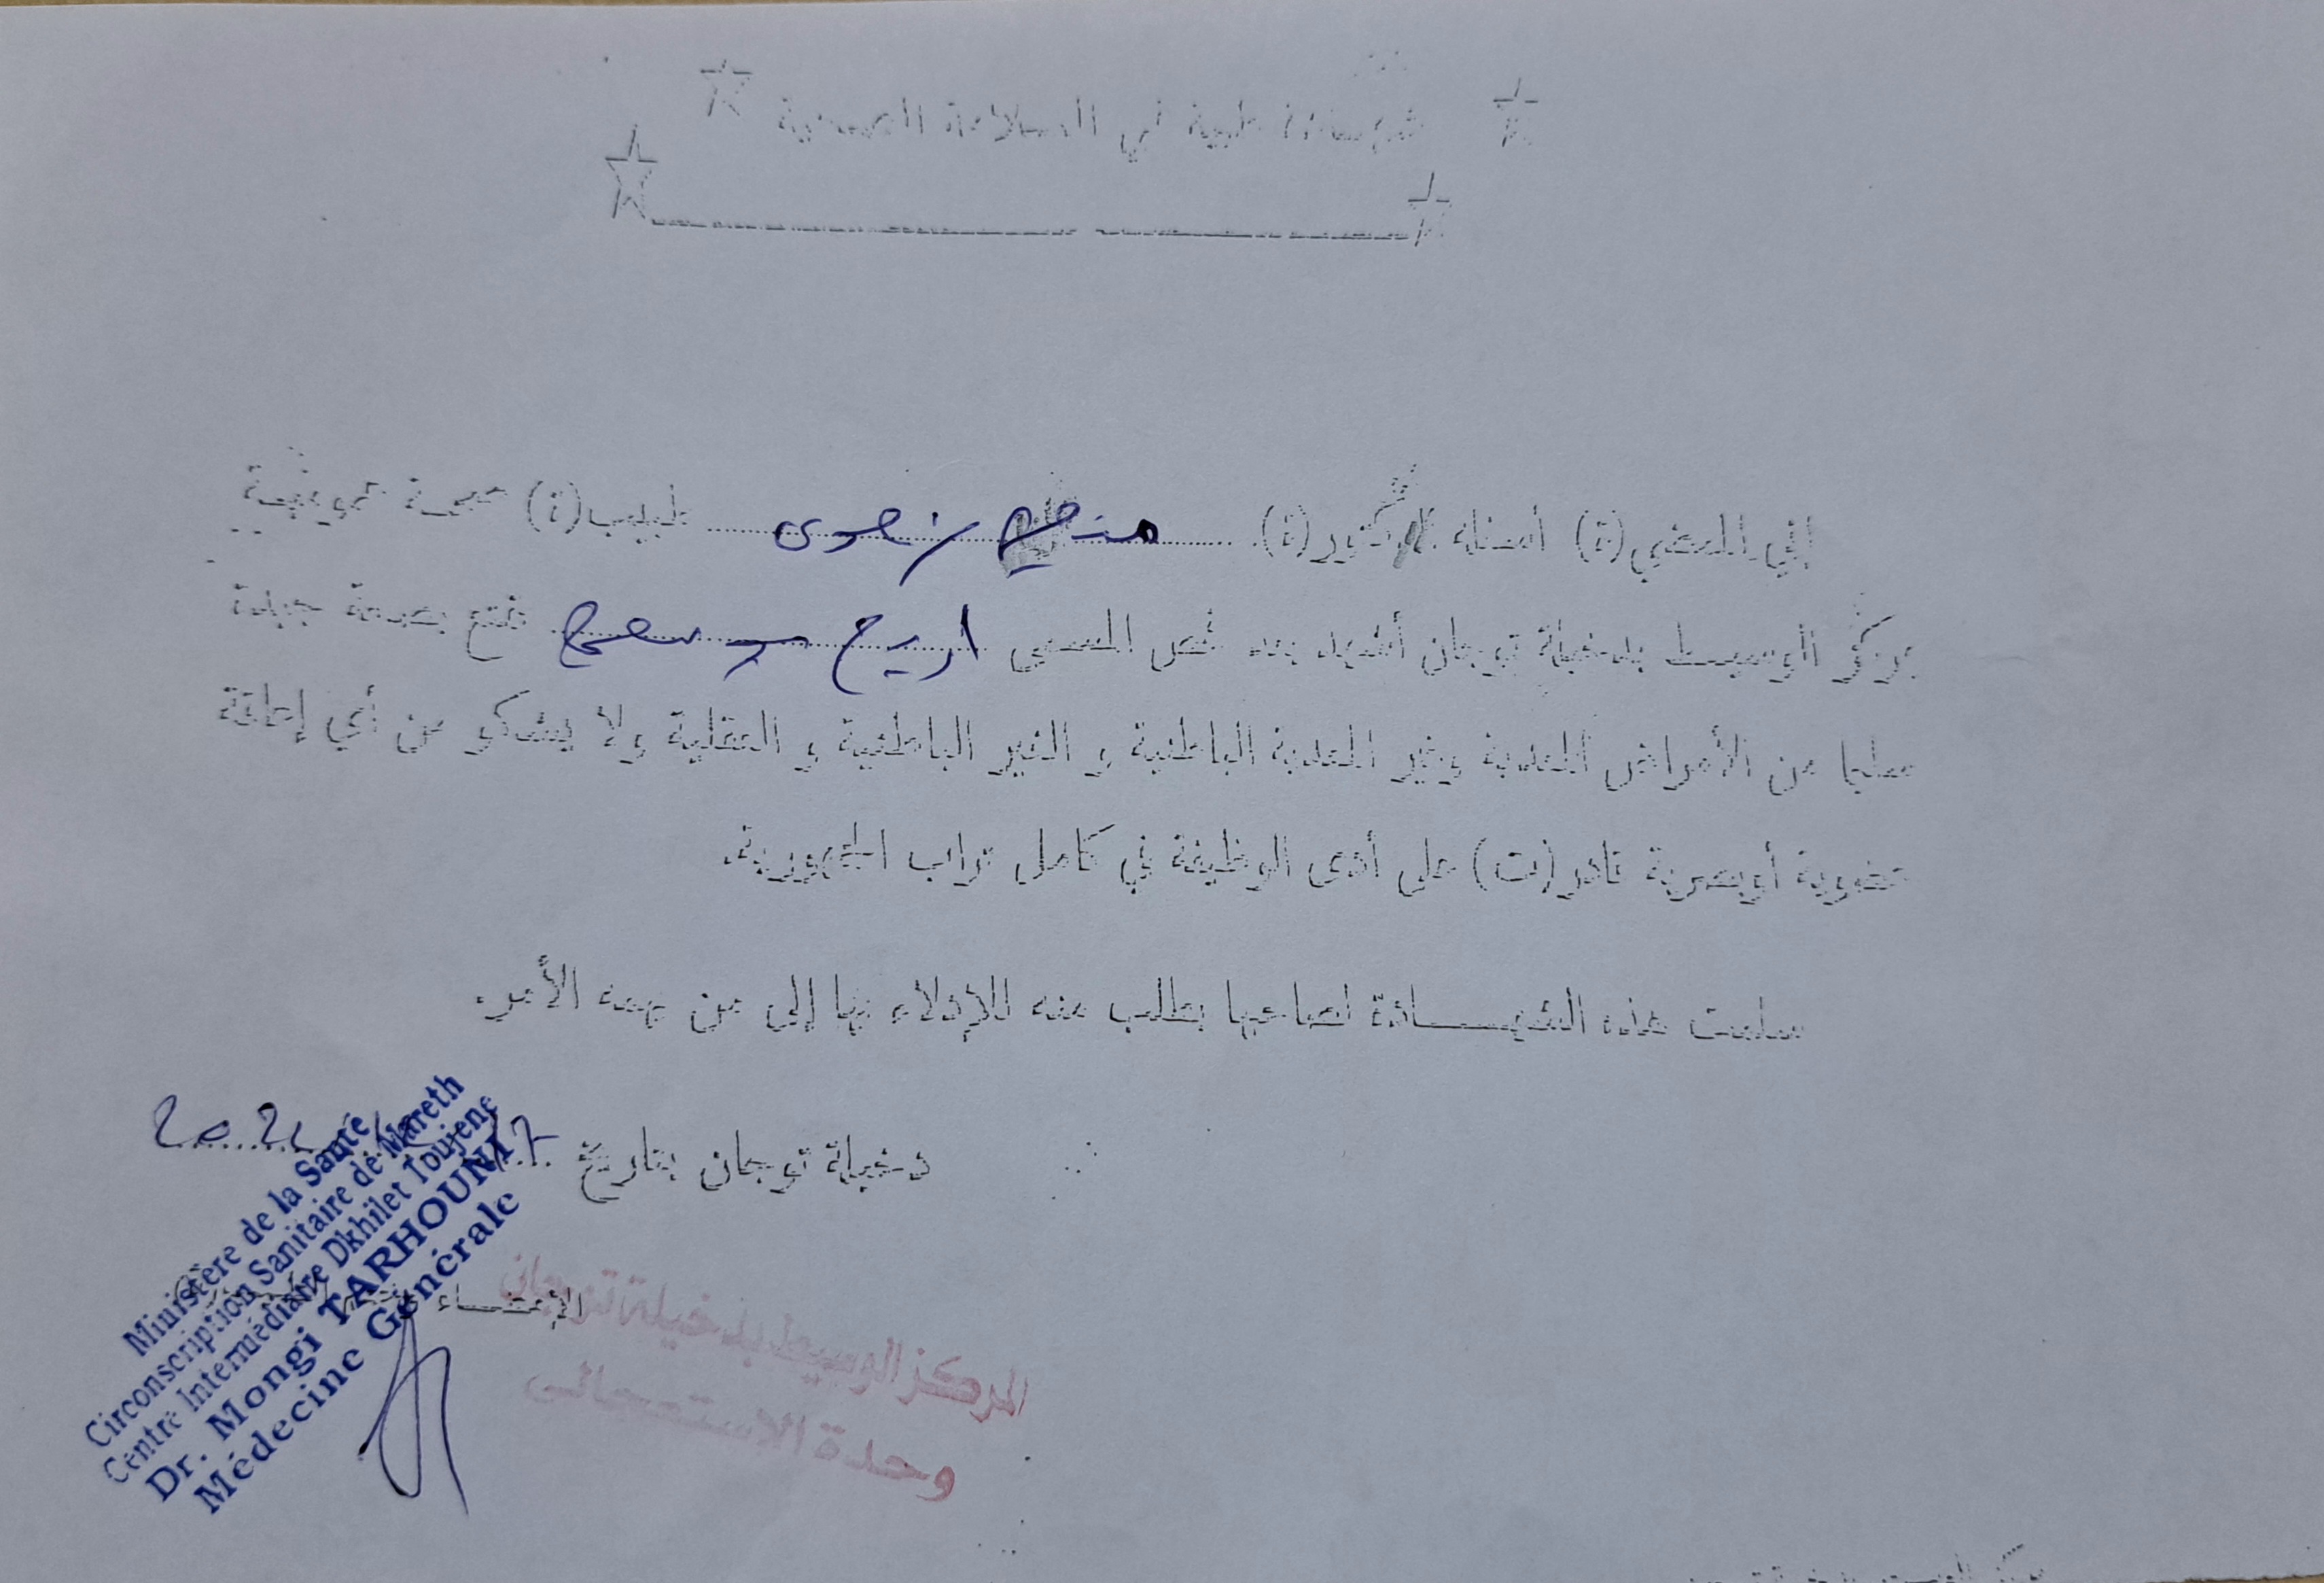 شهادة طبية في السلامة الصحية
إني الممضي(ة) أسفله الدكتور(ة). منجي ترهوني طبيب(ة) صحة عمومية
بمركز الوسيط بدخيلة توجان أشهد بعد فحص المسمى اريج تمتع بصحة جيدة
سليما من الأمراض المعدية وغير المعدية الباطنية و الغير الباطنية و العقلية ولا يشكو من أي إعاقة
عضوية أوبصرية قادر(ت) على أدى الوظيفة في كامل تراب الجمهورية.
سلمت هذه الشهـــــادة لصاحبها بطلب منه للإدلاء بها إلى من يهمه الأمر.
دخيلة توجان بتاريخ
الإمضـــاء
Ministère de la Santé
Circonscription Sanitaire de Mareth
Centre Intermédiaire Dkhilet Toujene
Dr. Mongi TARHOUNI
Médecine Générale
المركز الوسيط بدخيلة توجان
وحدة الاستعجالي